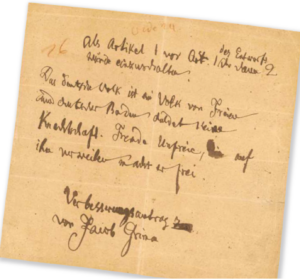 Als Artikel 1 vor Art. 1 des Entwurfs
würde einzuschalten:
Das deutsche Volk ist ein Volk von Freien
und deutscher Boden duldet keine
Knechtschaft. Fremde Unfreie, die auf
ihm verweilen macht er frei.
Verbesserungsantrag
von Jacob Grimm